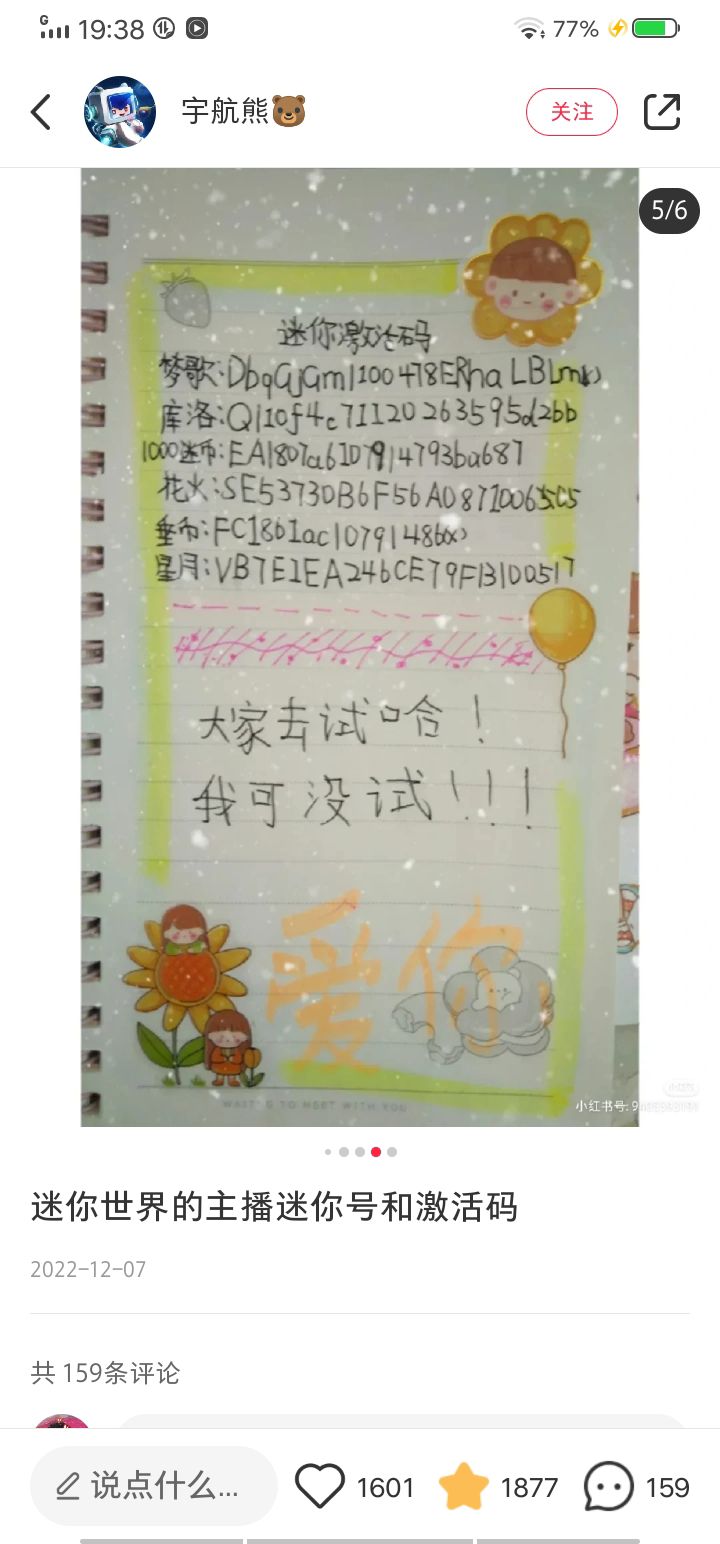 19:38
77%
宇航熊
关注
5/6
迷你激活码
梦歌:DbqGjGm1100478ERhaLBLmk)
库洛:Q110f4c71120263595d2bb
1000迷币:EA1807a6107914793ba687
花火:SE53730B6F56A0871006505
FC1861ac10791486
星月:VB7E1EA246CE79F13100517
大家去试哈！
我可没试!!!
爱你
WAITING TO MEET WITH YOU
小红书
小红书号:
迷你世界的主播迷你号和激活码
2022-12-07
共 159条评论
说点什么...
1601
1877
159